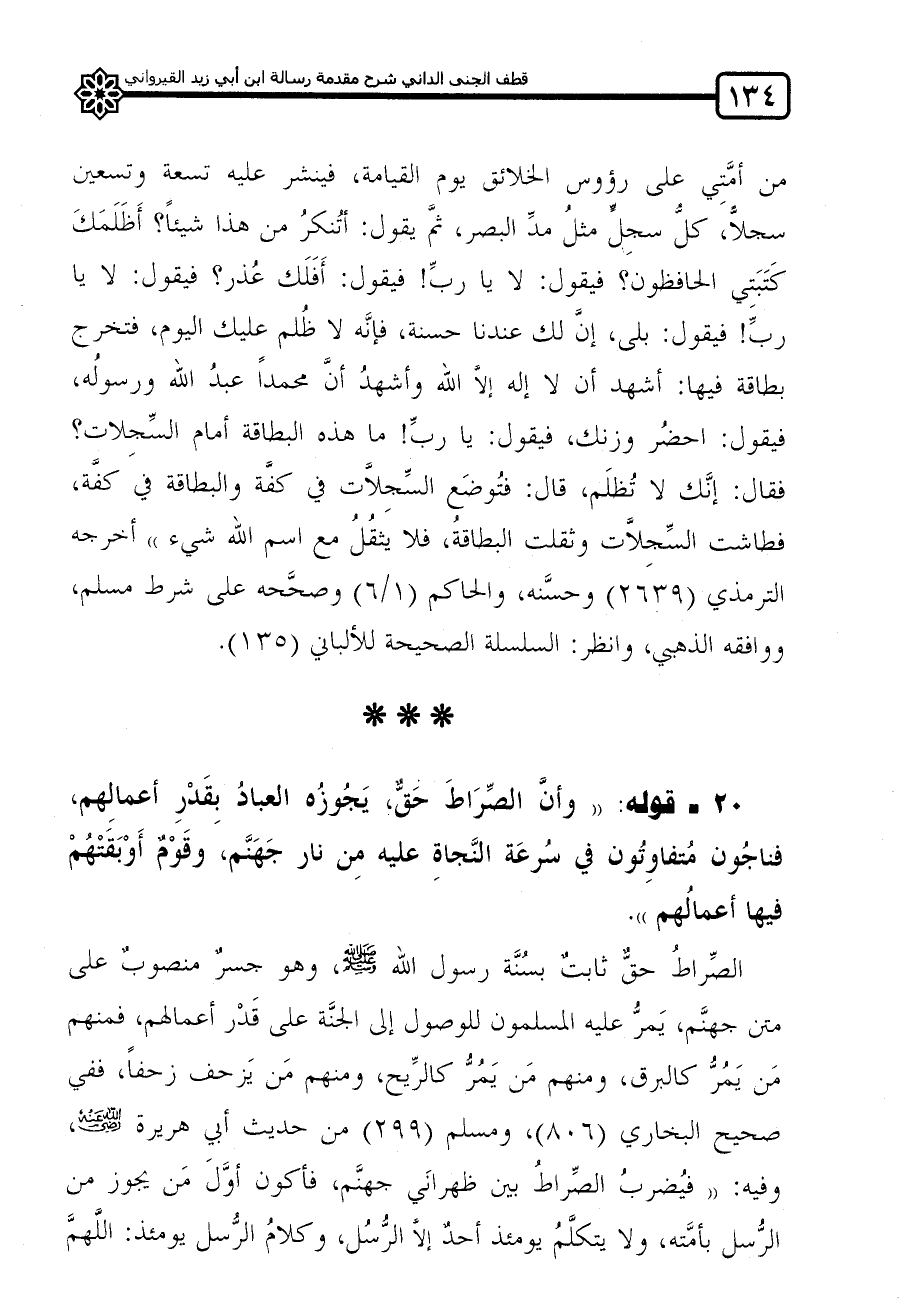 قطف الجنى الداني شرح مقدمة رسالة ابن أبي زيد القيرواني
١٣٤
من أمَّتِي على رؤوس الخلائق يوم القيامة، فينشر عليه تسعة وتسعين
سجلاًّ، كلُّ سجلٍّ مثلُ مدِّ البصر، ثمَّ يقول: أتُنكرُ من هذا شيئاً؟ أَظَلَمَكَ
كَتَبَتِي الحافظون؟ فيقول: لا يا ربِّ! فيقول: أَفَلَك عُذر؟ فيقول: لا يا
ربِّ! فيقول: بلى، إنَّ لك عندنا حسنة، فإنَّه لا ظُلم عليك اليوم، فتخرج
بطاقة فيها: أشهد أن لا إله إلاَّ الله وأشهدُ أنَّ محمداً عبدُ الله ورسولُه،
فيقول: احضُر وزنك، فيقول: يا ربِّ! ما هذه البطاقة أمام السِّجلات؟
فقال: إنَّك لا تُظلَم، قال: فتُوضَع السِّجلاَّت في كفَّة والبطاقة في كفَّة،
فطاشت السِّجلاَّت وثقلت البطاقةُ، فلا يثقُلُ مع اسم الله شيء )) أخرجه
الترمذي (٢٦٣٩) وحسَّنه، والحاكم (٦/١) وصحَّحه على شرط مسلم،
ووافقه الذهبي، وانظر: السلسلة الصحيحة للألباني (١٣٥).
* * *
٢٠ ـ قوله: (( وأنَّ الصِّرَاطَ حَقٌّ، يَجُوزُه العبادُ بِقَدْرِ أعمالِهم،
فناجُون مُتفاوِتُون في سُرعَة النَّجاةِ عليه مِن نار جَهَنَّم، وقَوْمٌ أَوْبَقَتْهُمْ
فيها أعمالُهم )).
الصِّراطُ حقٌّ ثابتٌ بسُنَّة رسول الله ﷺ، وهو جسرٌ منصوبٌ على
متن جهنَّم، يَمرُّ عليه المسلمون للوصول إلى الجنَّة على قَدْر أعمالهم، فمنهم
مَن يَمُرُّ كالبرق، ومنهم مَن يَمُرُّ كالرِّيح، ومنهم مَن يَزحف زحفاً، ففي
صحيح البخاري (٨٠٦)، ومسلم (٢٩٩) من حديث أبي هريرة رضي الله عنه،
وفيه: (( فيُضربُ الصِّراطُ بين ظهرانَي جهنَّم، فأكون أوَّلَ مَن يجوز من
الرُّسل بأمَّته، ولا يتكلَّمُ يومئذ أحدٌ إلاَّ الرُّسُل، وكلامُ الرسل يومئذ: اللَّهمَّ